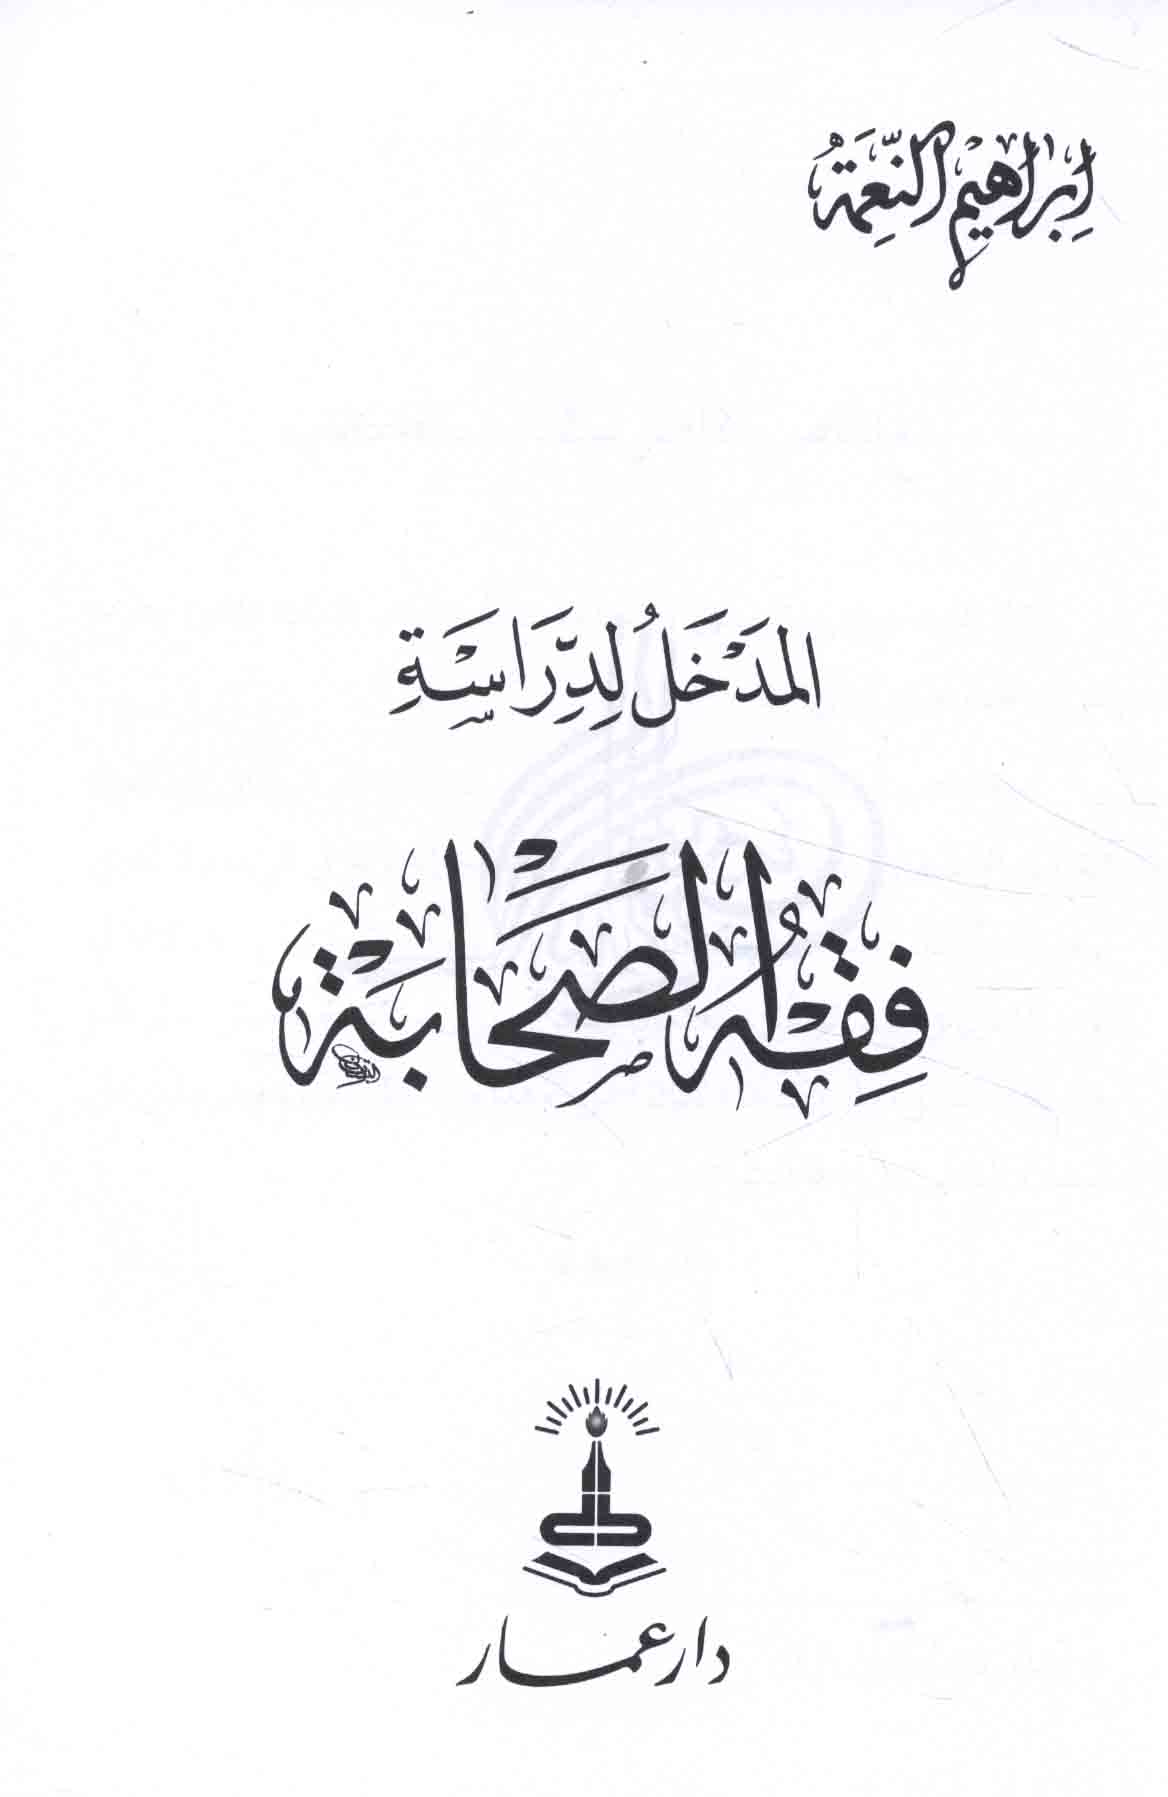 إبراهيم النِّعمَةُ
المَدْخَلُ لِدِرَاسَةِ
فِقْهُ الصَّحَابَة
دار عمار